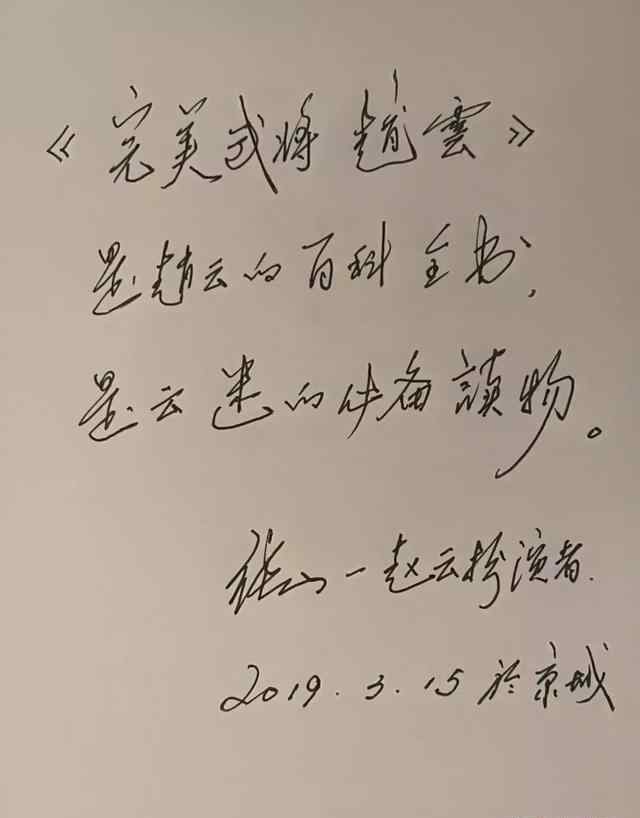 《完美武将 趙雲》
是趙云的百科全书,
是云迷的必备讀物。
张山一赵云扮演者.
2019.3.15 於京城